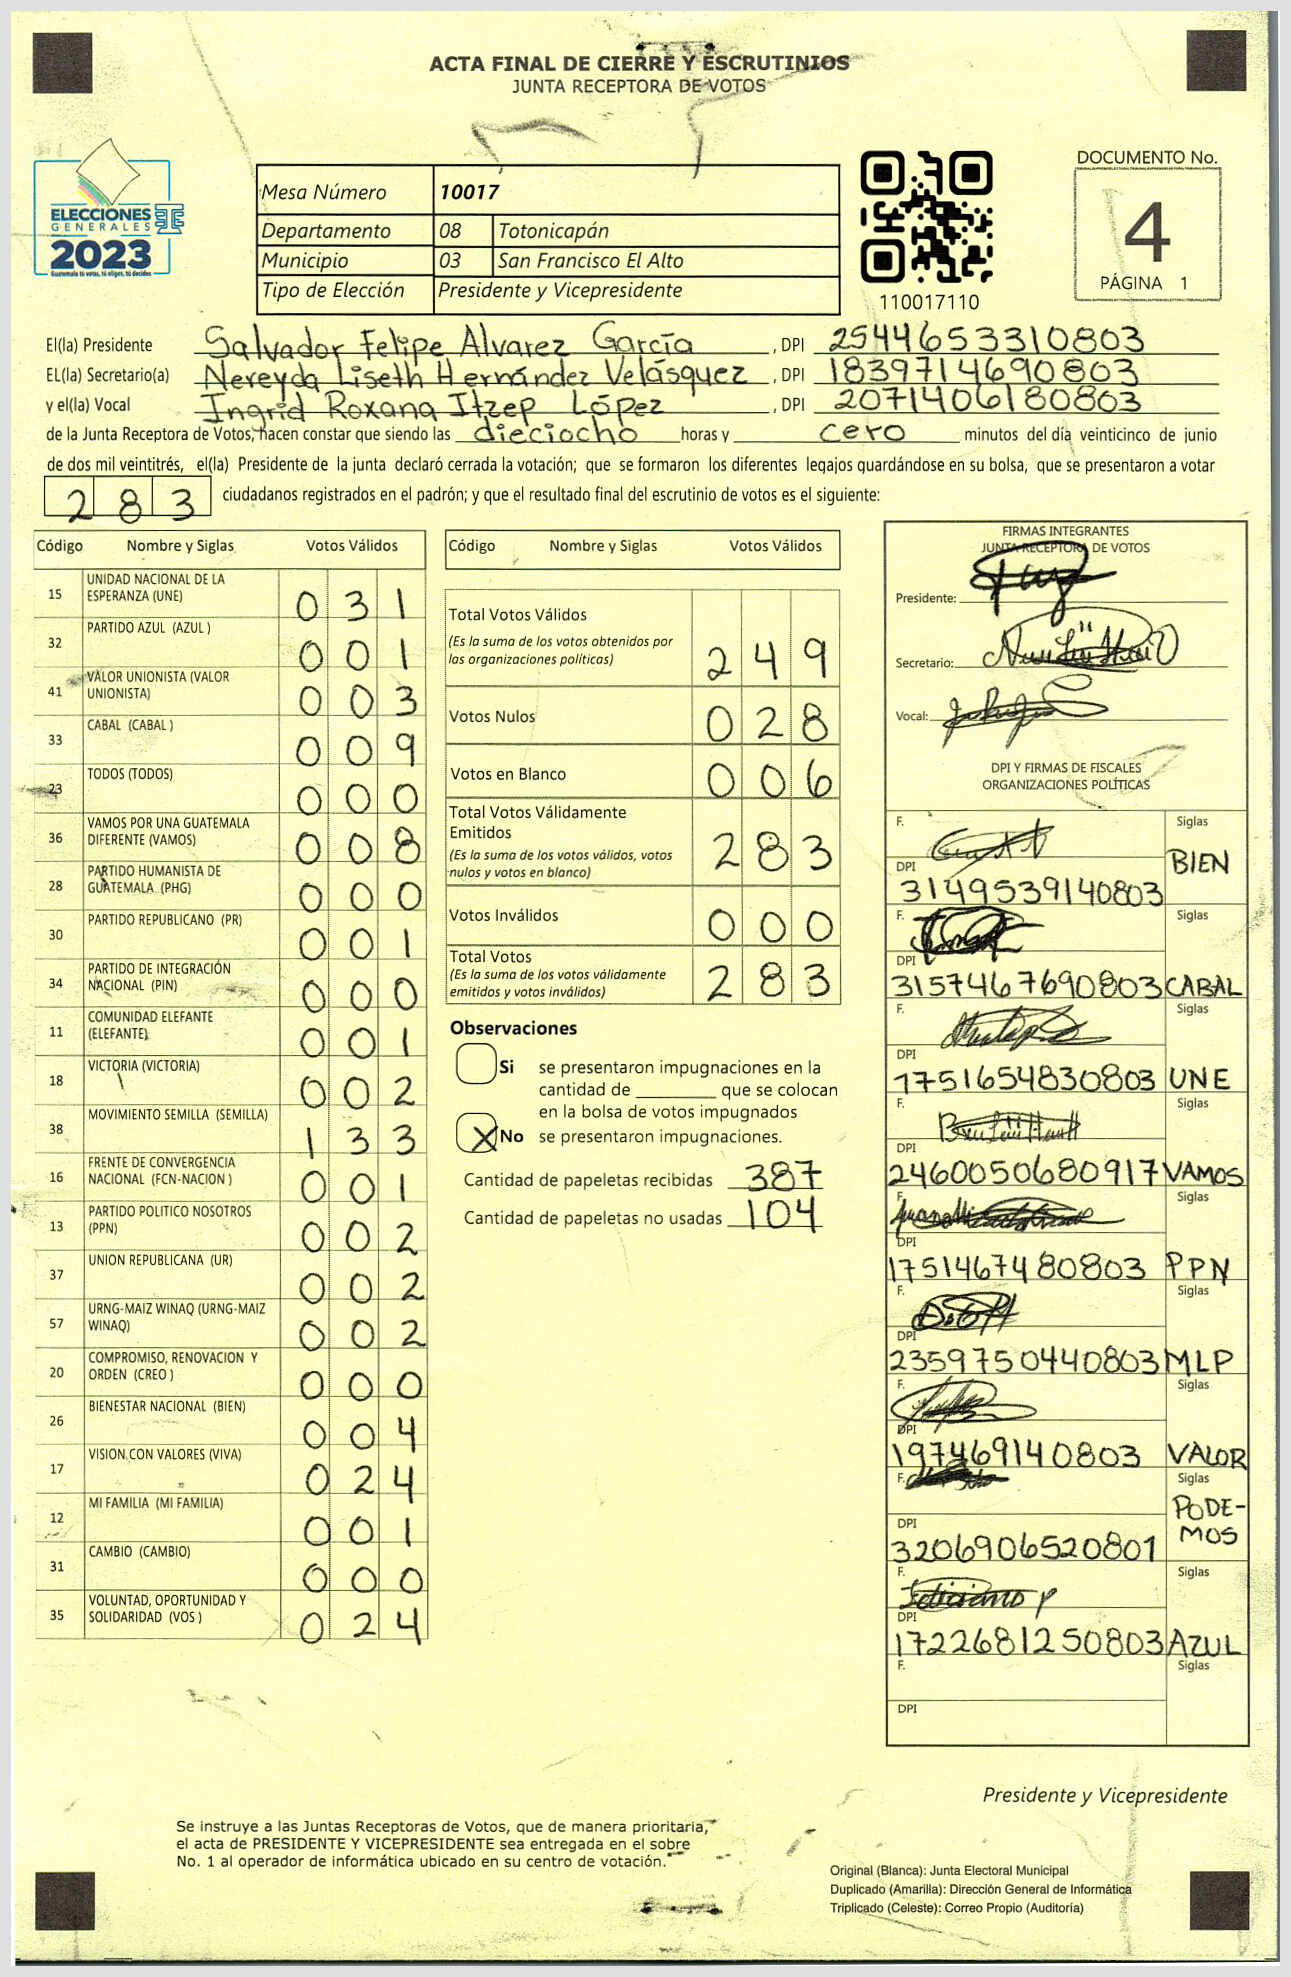 ACTA FINAL DE CIERRE Y ESCRUTINIOS
JUNTA RECEPTORA DE VOTOS
ELECCIONES
GENERALES
2023
Guatemala tú votas, tú eliges, tú decides
Mesa Número 10017
Departamento 08 Totonicapán
Municipio 03 San Francisco El Alto
Tipo de Elección Presidente y Vicepresidente
110017110
DOCUMENTO No.
4
PÁGINA 1
El(la) Presidente Salvador Felipe Alvarez García, DPI 2544653310803
EL(la) Secretario(a) Nereyda Liseth Hernández Velásquez, DPI 1839714690803
y el(la) Vocal Ingrid Roxana Itzep López, DPI 2071406180803
de la Junta Receptora de Votos, hacen constar que siendo las dieciocho horas y cero minutos del día veinticinco de junio
de dos mil veintitrés, el(la) Presidente de la junta declaró cerrada la votación; que se formaron los diferentes legajos guardándose en su bolsa, que se presentaron a votar
283 ciudadanos registrados en el padrón; y que el resultado final del escrutinio de votos es el siguiente:
Código Nombre y Siglas Votos Válidos
15 UNIDAD NACIONAL DE LA ESPERANZA (UNE) 031
32 PARTIDO AZUL (AZUL ) 001
41 VALOR UNIONISTA (VALOR UNIONISTA) 003
33 CABAL (CABAL ) 009
23 TODOS (TODOS) 000
36 VAMOS POR UNA GUATEMALA DIFERENTE (VAMOS) 008
28 PARTIDO HUMANISTA DE GUATEMALA (PHG) 000
30 PARTIDO REPUBLICANO (PR) 001
34 PARTIDO DE INTEGRACIÓN NACIONAL (PIN) 000
11 COMUNIDAD ELEFANTE (ELEFANTE) 001
18 VICTORIA (VICTORIA) 002
38 MOVIMIENTO SEMILLA (SEMILLA) 133
16 FRENTE DE CONVERGENCIA NACIONAL (FCN-NACION ) 001
13 PARTIDO POLITICO NOSOTROS (PPN) 002
37 UNION REPUBLICANA (UR) 002
57 URNG-MAIZ WINAQ (URNG-MAIZ WINAQ) 002
20 COMPROMISO, RENOVACION Y ORDEN (CREO ) 000
26 BIENESTAR NACIONAL (BIEN) 004
17 VISION CON VALORES (VIVA) 024
12 MI FAMILIA (MI FAMILIA) 001
31 CAMBIO (CAMBIO) 000
35 VOLUNTAD, OPORTUNIDAD Y SOLIDARIDAD (VOS ) 024
Código Nombre y Siglas Votos Válidos
Total Votos Válidos 249
(Es la suma de los votos obtenidos por
las organizaciones políticas)
Votos Nulos 028
Votos en Blanco 006
Total Votos Válidamente
Emitidos 283
(Es la suma de los votos válidos, votos
nulos y votos en blanco)
Votos Inválidos 000
Total Votos 283
(Es la suma de los votos válidamente
emitidos y votos inválidos)
Observaciones
Si se presentaron impugnaciones en la
cantidad de ________ que se colocan
en la bolsa de votos impugnados
X No se presentaron impugnaciones.
Cantidad de papeletas recibidas 387
Cantidad de papeletas no usadas 104
FIRMAS INTEGRANTES
JUNTA RECEPTORA DE VOTOS
Presidente:
Secretario:
Vocal:
DPI Y FIRMAS DE FISCALES
ORGANIZACIONES POLÍTICAS
F. Siglas
DPI BIEN
3149539140803
F. Siglas
DPI
3157467690803 CABAL
F. Siglas
DPI
1751654830803 UNE
F. Siglas
DPI
2460050680917 VAMOS
F. Siglas
DPI
1751467480803 PPN
F. Siglas
DPI
2359750440803 MLP
F. Siglas
DPI
197469140803 VALOR
F. Siglas
DPI PODE-
MOS
3206906520801
F. Siglas
DPI
1722681250803 AZUL
F. Siglas
DPI
Presidente y Vicepresidente
Se instruye a las Juntas Receptoras de Votos, que de manera prioritaria,
el acta de PRESIDENTE Y VICEPRESIDENTE sea entregada en el sobre
No. 1 al operador de informática ubicado en su centro de votación.
Original (Blanca): Junta Electoral Municipal
Duplicado (Amarilla): Dirección General de Informática
Triplicado (Celeste): Correo Propio (Auditoría)